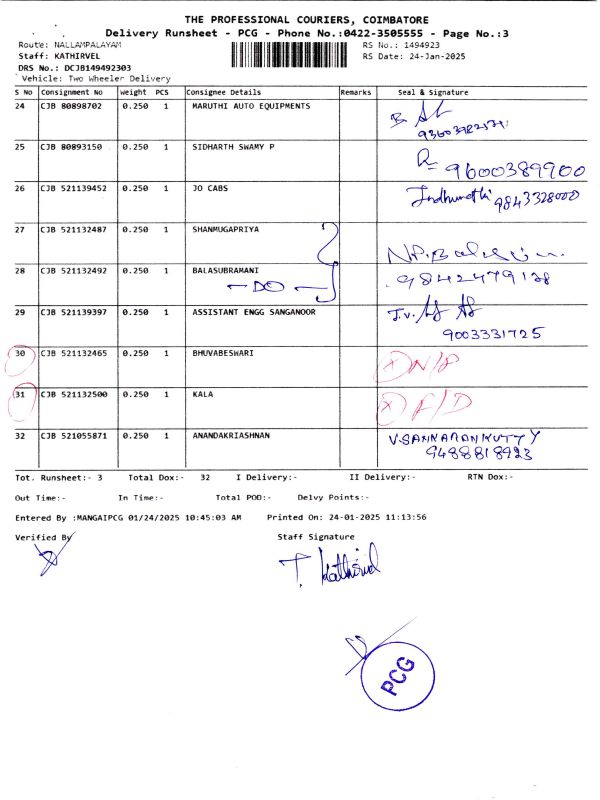 THE PROFESSIONAL COURIERS, COIMBATORE
Delivery Runsheet - PCG - Phone No.:0422-3505555 - Page No.:3
Route: NALLAMPALAYAM RS No.: 1494923
Staff: KATHIRVEL RS Date: 24-Jan-2025
DRS No.: DCJB149492303
Vehicle: Two Wheeler Delivery
S No Consignment No Weight PCS Consignee Details Remarks Seal & Signature
24 CJB 80898702 0.250 1 MARUTHI AUTO EQUIPMENTS
25 CJB 80893150 0.250 1 SIDHARTH SWAMY P 9600389900
26 CJB 521139452 0.250 1 JO CABS Indhumathi 9843328000
27 CJB 521132487 0.250 1 SHANMUGAPRIYA
28 CJB 521132492 0.250 1 BALASUBRAMANI 9842479128
DO
29 CJB 521139397 0.250 1 ASSISTANT ENGG SANGANOOR J.V.
9003331725
30 CJB 521132465 0.250 1 BHUVABESWARI N/S
31 CJB 521132500 0.250 1 KALA F/D
32 CJB 521055871 0.250 1 ANANDAKRIASHNAN V. SANKARANKUTTY
9488818923
Tot. Runsheet:- 3 Total Dox:- 32 I Delivery:- II Delivery:- RTN Dox:-
Out Time:- In Time:- Total POD:- Delvy Points:-
Entered By :MANGAIPCG 01/24/2025 10:45:03 AM Printed On: 24-01-2025 11:13:56
Verified By Staff Signature
T. Kathirvel
PCG